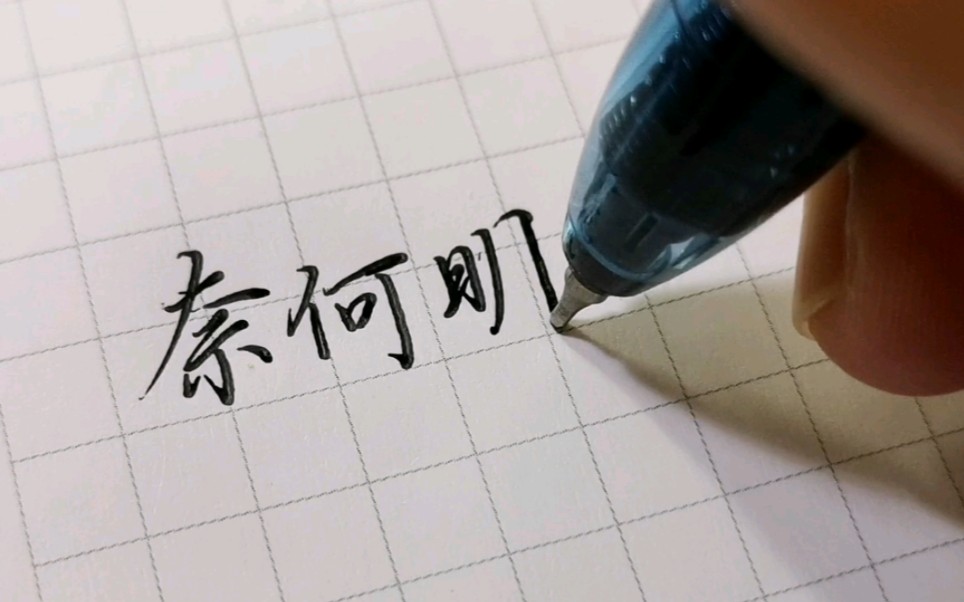 奈何明